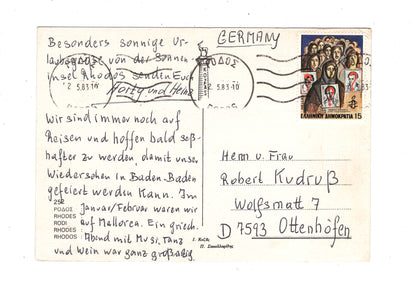 GERMANY
Besonders sonnige Ur-
laubsgrüsse von der Sonnen-
insel Rhodos senden Euch
Horty und Heinz
ΡΟΔΟΣ
2. 5.83
2. 5.83
ΕΛΛΗΝΙΚΗ ΔΗΜΟΚΡΑΤΙΑ 15
Wir sind immer noch auf
Reisen und hoffen bald seß-
hafter zu werden, damit unser
Wiedersehen in Baden-Baden
gefeiert werden kann. Im
Januar/Februar waren wir
auf Mallorca. Ein griech.
Abend mit Musi, Tanz
und Wein war ganz großartig.
252
ΡΟΔΟΣ
RHODES
RODI
RHODES
RHODOS
Herrn u. Frau
Robert Kudruß
Wolfsmatt 7
D 7593 Ottenhöfen